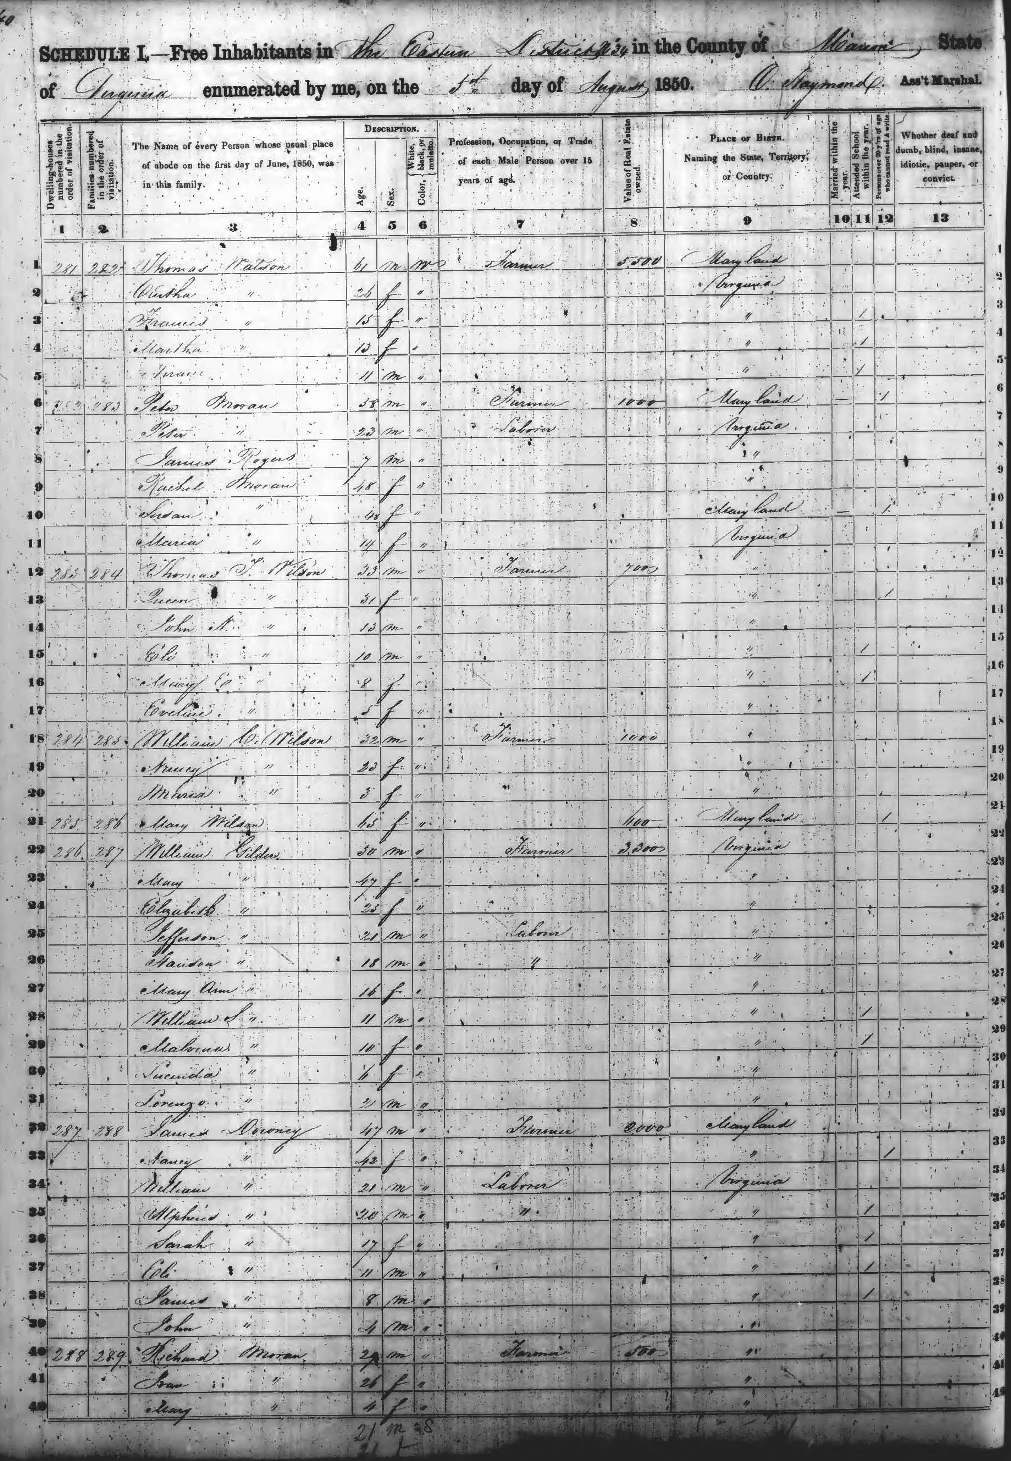 40
SCHEDULE I.—Free Inhabitants in The Eastern District No 24 in the County of Marion, State
of Virginia enumerated by me, on the 5th day of August, 1850. Ass't Marshal.
Dwelling-houses numbered in the order of visitation.
Families numbered in the order of visitation.
The Name of every Person whose usual place of abode on the first day of June, 1850, was in this family.
DESCRIPTION.
Age.
Sex.
Color, White, black, or mulatto.
Profession, Occupation, or Trade of each Male Person over 15 years of age.
Value of Real Estate owned.
PLACE OF BIRTH. Naming the State, Territory, or Country.
Married within the year.
Attended School within the year.
Persons over 20 y'rs of age who cannot read & write.
Whether deaf and dumb, blind, insane, idiotic, pauper, or convict.
1 2 3 4 5 6 7 8 9 10 11 12 13
1 281 282 Thomas Watson 61 m W Farmer 5,500 Maryland
2 " 26 f " Virginia
3 Frances " 15 f " " 1
4 Martha " 13 f " " 1
5 11 m " " 1
6 283 Peter Moran 58 m " Farmer 1000 Maryland 1
7 Peter " 23 m " Laborer Virginia
8 James Rogers 7 m " "
9 Rachel Moran 48 f " "
10 Susan " f " Maryland 1
11 Maria " 14 f " Virginia
12 283 284 Thomas F. Wilson 33 m " Farmer 700 "
13 Queen " 31 f " " 1
14 John N. " 13 m " "
15 Eli " 10 m " " 1
16 E. " 8 f " " 1
17 Eveline " 5 f " "
18 284 285 William C. Wilson 32 m " Farmer 1000 "
19 Nancy " 23 f " "
20 Maria " 3 f " "
21 285 286 Mary Wilson 65 f " 600 Maryland 1
22 286 287 William 50 m " Farmer 3,300 Virginia
23 Mary " 47 f " "
24 Elizabeth " 23 f " "
25 Jefferson " 21 m " Labour "
26 " 18 m " " "
27 Mary Ann " 16 f " "
28 William S " 11 m " " 1
29 Malvina " 10 f " " 1
30 Lucinda " 6 f " "
31 Lorenzo " m "
32 287 288 James Downey 47 m " Farmer 2000 Maryland
33 Nancy " 42 f " " 1
34 William " 21 m " Laborer Virginia
35 Alpheus " 20 m " " " 1
36 Sarah " 17 f " " 1
37 Eli " 11 m " " 1
38 James " 8 m " " 1
39 John " 4 m " "
40 288 289 Richard Moran 29 m " Farmer 500 "
41 " 26 f " "
42 Mary " 4 f " "
21 m
21 f